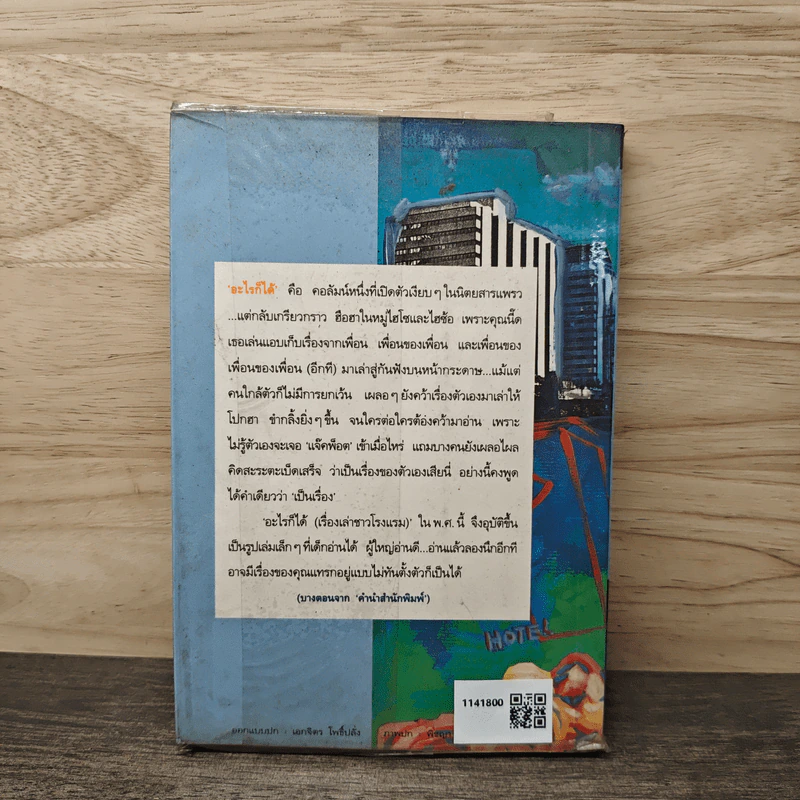 'อะไรก็ได้' คือ คอลัมน์หนึ่งที่เปิดตัวเงียบๆ ในนิตยสารแพรว
...แต่กลับเกรียวกราว ฮือฮาในหมู่ไฮโซและไฮซ้อ เพราะคุณนิ๊ด
เธอเล่นแอบเก็บเรื่องจากเพื่อน เพื่อนของเพื่อน และเพื่อนของ
เพื่อนของเพื่อน (อีกที) มาเล่าสู่กันฟังบนหน้ากระดาษ...แม้แต่
คนใกล้ตัวก็ไม่มีการยกเว้น เผลอๆ ยังคว้าเรื่องตัวเองมาเล่าให้
โปกฮา ขำกลิ้งยิ่งๆ ขึ้น จนใครต่อใครต้องคว้ามาอ่าน เพราะ
ไม่รู้ตัวเองจะเจอ 'แจ๊คพ็อต' เข้าเมื่อไหร่ แถมบางคนยังเผลอไผล
คิดสะระตะเบ็ดเสร็จ ว่าเป็นเรื่องของตัวเองเสียนี่ อย่างนี้คงพูด
ได้คำเดียวว่า 'เป็นเรื่อง'
'อะไรก็ได้ (เรื่องเล่าชาวโรงแรม)' ใน พ.ศ. นี้ จึงอุบัติขึ้น
เป็นรูปเล่มเล็กๆ ที่เด็กอ่านได้ ผู้ใหญ่อ่านดี...อ่านแล้วลองนึกอีกที
อาจมีเรื่องของคุณแทรกอยู่แบบไม่ทันตั้งตัวก็เป็นได้
(บางตอนจาก 'คำนำสำนักพิมพ์')
HOTEL
1141800
ออกแบบปก : เอกจิตร โพธิ์ปลั่ง ภาพปก :